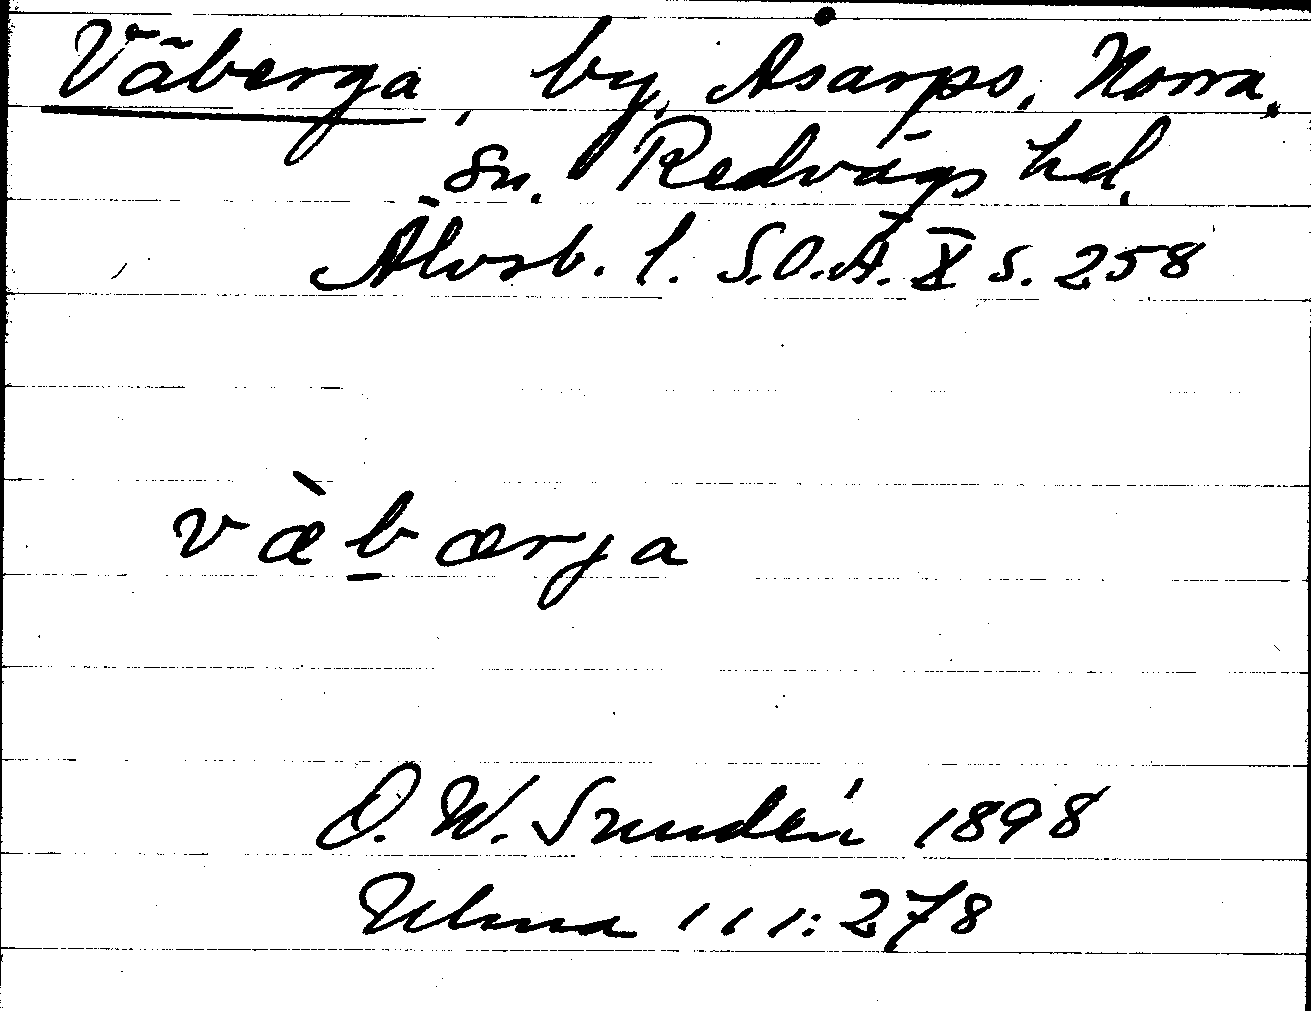 Väberga, by, Åsarps, Norra,
sn. Redvägs hd,
Älvsb. l. S.O.Ä. X s. 258
væ̀bærja
O. W. Sundén 1898
Ulma 111:278